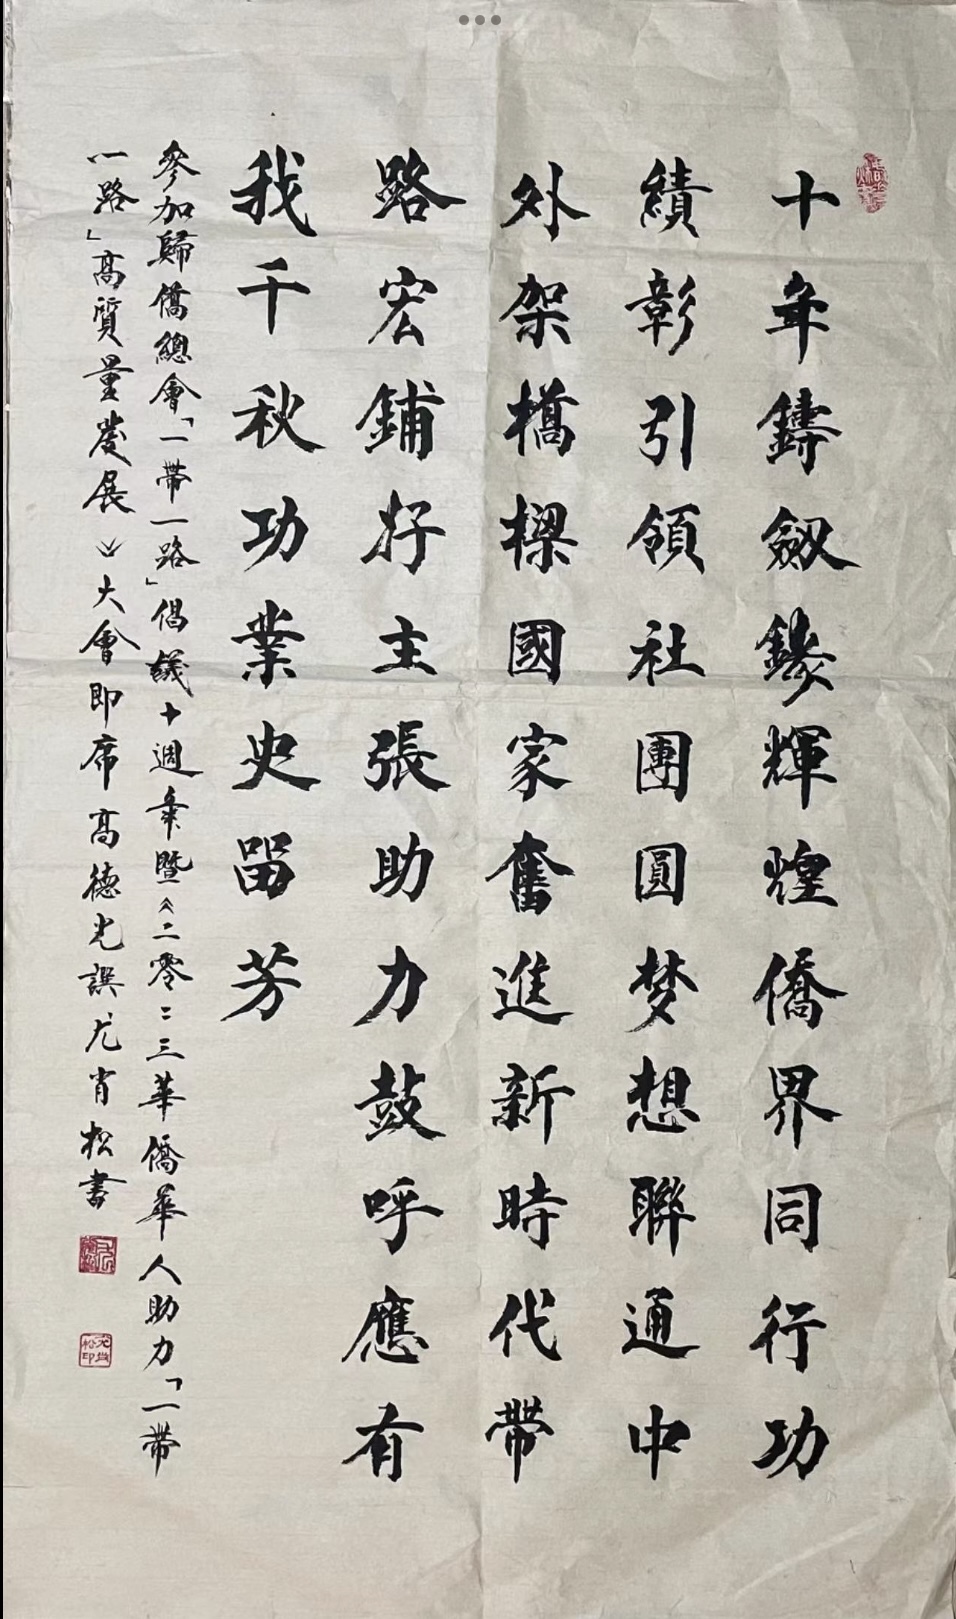 十年鑄劔鋒輝煌僑界同行功
績彰引領社團圓梦想聯通中
外架橋樑國家奮進新時代帶
路宏鋪好主張助力鼓呼應有
我千秋功業史畱芳
參加歸僑總會「一帶一路」倡議十週年暨《二零二三華僑華人助力「一帶
一路」高質量發展》大會即席高德光譔尤肖松書
尤肖松印